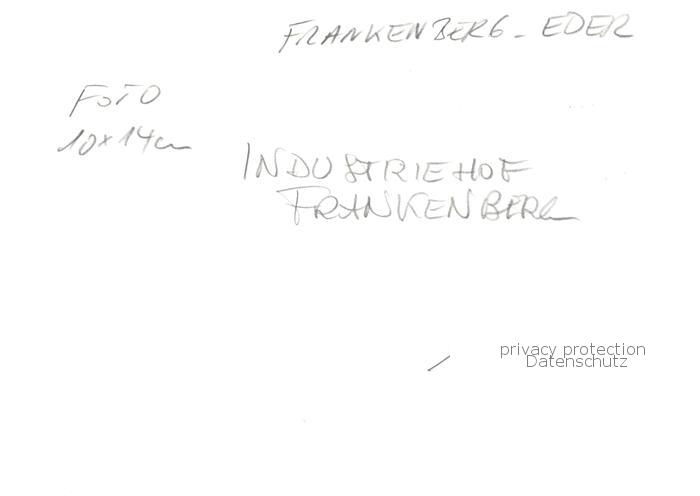 FRANKENBERG - EDER
FOTO
10x14cm
INDUSTRIEHOF
FRANKENBERG
privacy protection
Datenschutz